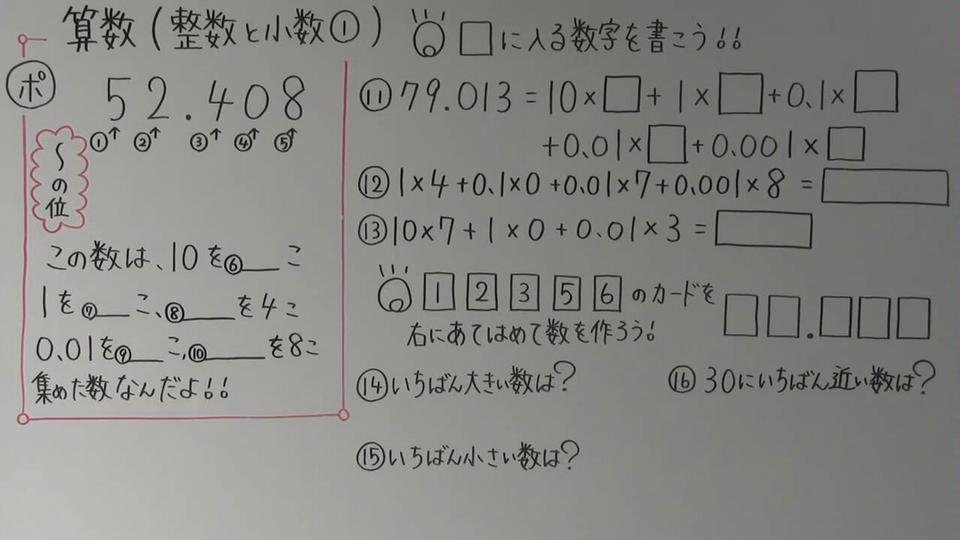 算数(整数と小数①)
ポ
52.408
①↑ ②↑ ③↑ ④↑ ⑤↑
〜の位
この数は、10を⑥__こ
1を⑦__こ、⑧___を4こ
0.01を⑨__こ、⑩____を8こ
集めた数なんだよ!!
□に入る数字を書こう!!
⑪79.013=10×□+1×□+0.1×□
+0.01×□+0.001×□
⑫1×4+0.1×0+0.01×7+0.001×8=□
⑬10×7+1×0+0.01×3=□
1 2 3 5 6のカードを
右にあてはめて数を作ろう!
□□.□□□
⑭いちばん大きい数は?
⑯30にいちばん近い数は?
⑮いちばん小さい数は?